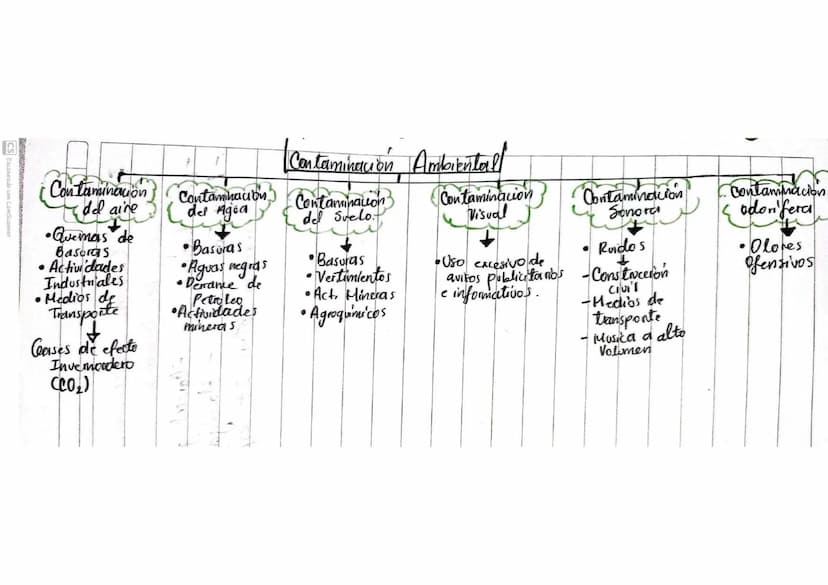 CS Escaneado con CamScanner
Contaminación Ambiental
Contaminación
del aire
• Quemas de
Basuras
• Actividades
Industriales
• Medios de
Transporte
Gases de efecto
Invernadero
(CO₂)
Contaminación
del Agua
• Basuras
• Aguas negras
• Derrame de
Petroleo
• Actividades
mineras
Contaminación
del Suelo.
• Basuras
• Vertimientos
• Act. Mineras
• Agroquímicos
Contaminacion
Visual
• Uso excesivo de
avisos publicitarios
e informativos.
Contaminación
Sonora
• Ruidos
- Construcción
civil
- Medios de
transporte
- Musica a alto
Volumen
Contaminación
odorifera
• Olores
Ofensivos